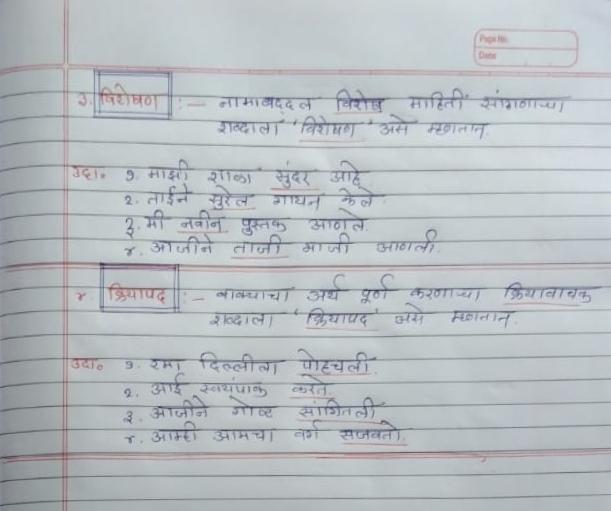 Page No.
Date
३. विशेषण :- नामाबद्दल विशेष माहिती सांगणाऱ्या
शब्दाला 'विशेषण' असे म्हणतात.
उदा. १. माझी शाळा सुंदर आहे
२. ताईने सुरेल गायन केले.
३. मी नवीन पुस्तक आणले.
४. आजीने ताजी भाजी आणली.
४. क्रियापद :- वाक्याचा अर्थ पूर्ण करणाऱ्या क्रियावाचक
शब्दाला 'क्रियापद' असे म्हणतात.
उदा. १. रमा दिल्लीला पोहचली.
२. आई स्वयंपाक करते.
३. आजीने गोष्ट सांगितली
४. आम्ही आमचा वर्ग सजवतो.